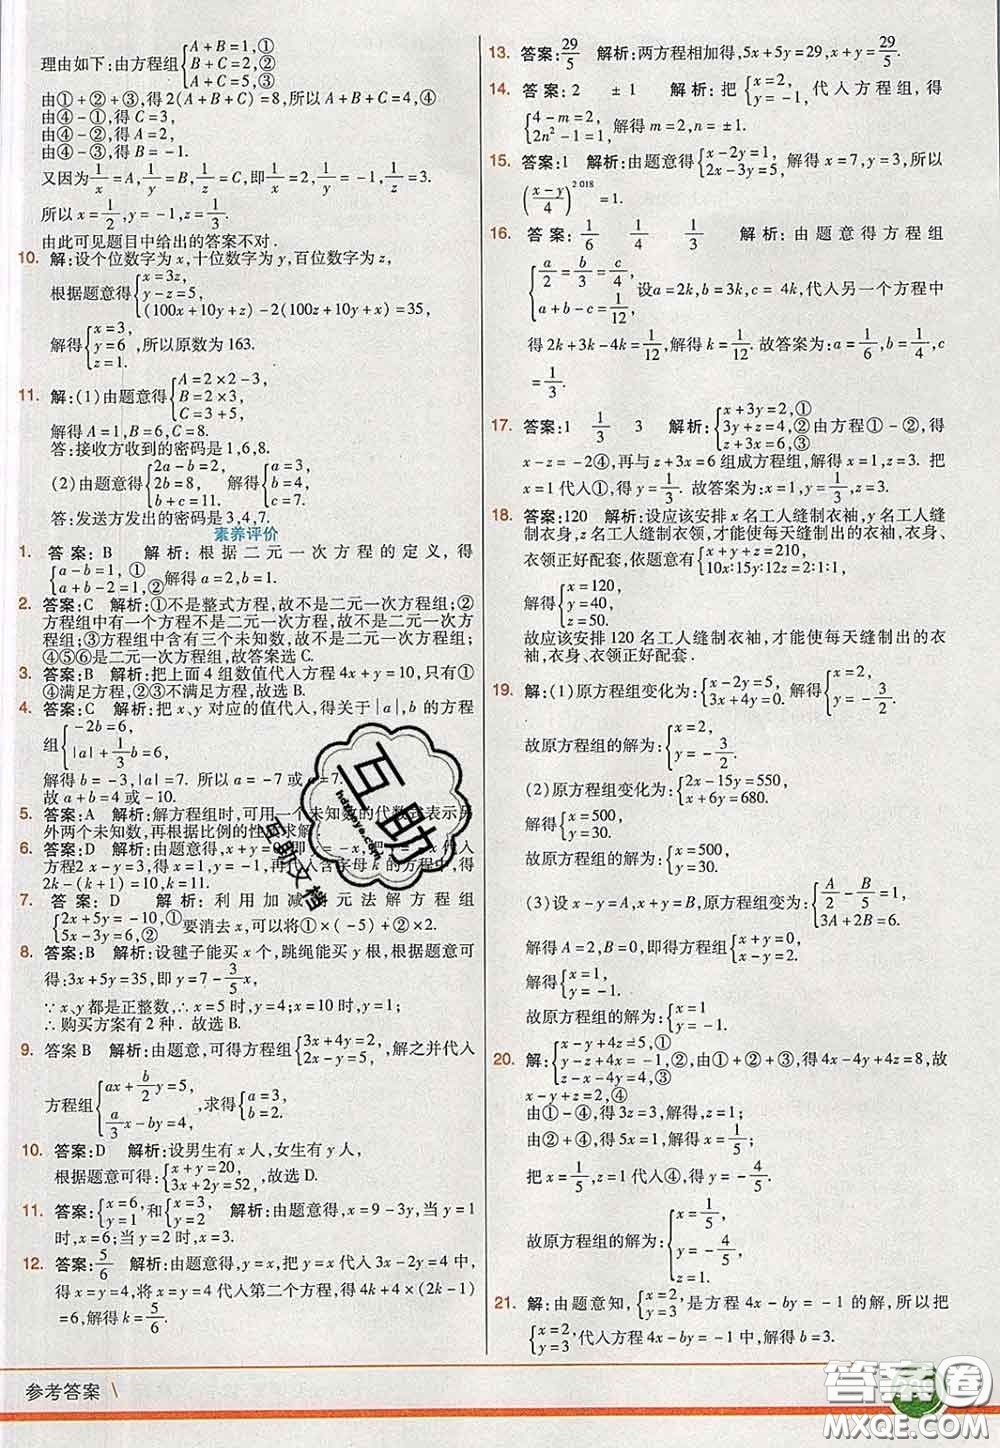 理由如下:由方程组{A+B=1,① B+C=2,② A+C=5,③
由①+②+③,得2(A+B+C)=8,所以A+B+C=4,④
由④-①,得C=3,
由④-②,得A=2,
由④-③,得B=-1.
又因为1/x=A,1/y=B,1/z=C,即1/x=2,1/y=-1,1/z=3.
所以x=1/2,y=-1,z=1/3.
由此可见题目中给出的答案不对.
10. 解:设个位数字为x,十位数字为y,百位数字为z,
根据题意得{x=3z, y-z=5, (100x+10y+z)-2(100z+10y+x)=35,
解得{x=3, y=6, z=1. ,所以原数为163.
11. 解:(1)由题意得{A=2×2-3, B=2×3, C=3+5,
解得A=1,B=6,C=8.
答:接收方收到的密码是1,6,8.
(2)由题意得{2a-b=2, 2b=8, b+c=11. 解得{a=3, b=4, c=7.
答:发送方发出的密码是3,4,7.
素养评价
1. 答案:B 解析:根据二元一次方程的定义,得
{a-b=1,① a+b-2=1,② 解得a=2,b=1.
2. 答案:C 解析:①不是整式方程,故不是二元一次方程组;②
方程组中有一个方程不是二元一次方程,故不是二元一次方
程组;③方程组中含有三个未知数,故不是二元一次方程组;
④⑤⑥是二元一次方程组,故答案选C.
3. 答案:B 解析:把上面4组数值代入方程4x+y=10,只有①
④满足方程,②③不满足方程,故选B.
4. 答案:C 解析:把x、y对应的值代入,得关于|a|,b的方程
组{-2b=6, |a|+1/3b=6,
解得b=-3,|a|=7. 所以a=-7或a=7.
故a+b=4或-10.
5. 答案:A 解析:解方程组时,可用一个未知数的代数式表示另
外两个未知数,再根据比例的性质求解
6. 答案:D 解析:由题意得,x+y=0,即y=-x,把y=-x代
入方程2x-3y=5,得x=1,y=-1. 再代入含字母k的方程中,得
2k-(k+1)=10,k=11.
7. 答案:D 解析:利用加减消元法解方程组
{2x+5y=-10,① 5x-3y=6,② 要消去x,可以①×(-5)+②×2.
8. 答案:B 解析:设毽子能买x个,跳绳能买y根,根据题意可
得:3x+5y=35,即y=7-3/5x,
∵x、y都是正整数,∴x=5时,y=4;x=10时,y=1;
∴购买方案有2种.故选B.
9. 答案B 解析:由题意,可得方程组{3x+4y=2, 2x-y=5, ,解之并代入
方程组{ax+b/2y=5, a/3x-by=4, ,求得{a=3, b=2.
10. 答案:D 解析:设男生有x人,女生有y人,
根据题意可得:{x+y=20, 3x+2y=52, ,故选D.
11. 答案:{x=6, y=1 和{x=3, y=2 解析:由题意得,x=9-3y,当y=1
时,x=6;当y=2时,x=3.
12. 答案:5/6 解析:由题意得,x=y,把y=x代入3x-2y=4中,
得x=4,y=4,将x=y=4代入第二个方程,得4k+4×(2k-1)
=6,解得k=5/6.
13. 答案:29/5 解析:两方程相加得,5x+5y=29,x+y=29/5.
14. 答案:2 ±1 解析:把{x=2, y=-1, 代入方程组,得
{4-m=2, 2n²-1=1, 解得m=2,n=±1.
15. 答案:1 解析:由题意得{x-2y=1, 2x-3y=5, 解得x=7,y=3,所以
((x-y)/4)^2018=1.
16. 答案:1/6 1/4 1/3 解析:由题意得方程组
{a/2=b/3=c/4, a+b-c=1/12, 设a=2k,b=3k,c=4k,代入另一个方程中
得2k+3k-4k=1/12,解得k=1/12.故答案为:a=1/6,b=1/4,c
=1/3.
17. 答案:1 1/3 3 解析:{x+3y=2,① 3y+z=4,② z+3x=6,③ 由方程①-②,得
x-z=-2④,再与z+3x=6组成方程组,解得x=1,z=3. 把
x=1代入①,得y=1/3.故答案为:x=1,y=1/3,z=3.
18. 答案:120 解析:设应该安排x名工人缝制衣袖,y名工人缝
制衣身,z名工人缝制衣领,才能使每天缝制出的衣袖、衣身、
衣领正好配套,依题意有{x+y+z=210, 10x∶15y∶12z=2∶1∶1,
解得{x=120 y=40, z=50.
故应该安排120名工人缝制衣袖,才能使每天缝制出的衣
袖、衣身、衣领正好配套.
19. 解:(1)原方程组变化为:{x-2y=5, 3x+4y=0. 解得{x=2, y=-3/2.
故原方程组的解为:{x=2, y=-3/2.
(2)原方程组变化为:{2x-15y=550, x+6y=680.
解得{x=500, y=30.
故原方程组的解为:{x=500, y=30.
(3)设x-y=A,x+y=B,原方程组变为:{A/2-B/5=1, 3A+2B=6.
解得A=2,B=0,即得方程组{x+y=0, x-y=2.
解得{x=1, y=-1.
故原方程组的解为:{x=1 y=-1.
20. 解:{x-y-z=5,① y-z+4x=-1,② z-x-4y=4,③ ,由①+②+③,得4x-4y+4z=8,故
x-y+z=2,④
由①-④,得3z=3,解得,z=1;
由②+④,得5x=1,解得x=1/5;
把x=1/5,z=1代入④,得y=-4/5.
故原方程组的解为:{x=1/5, y=-4/5, z=1.
21. 解:由题意知,{x=2, y=3, 是方程4x-by=-1的解,所以把
{x=2, y=3, 代入方程4x-by=-1中,解得b=3.
互助
hdzhyo.com
互助文档
参考答案
答案圈
MXQE.COM